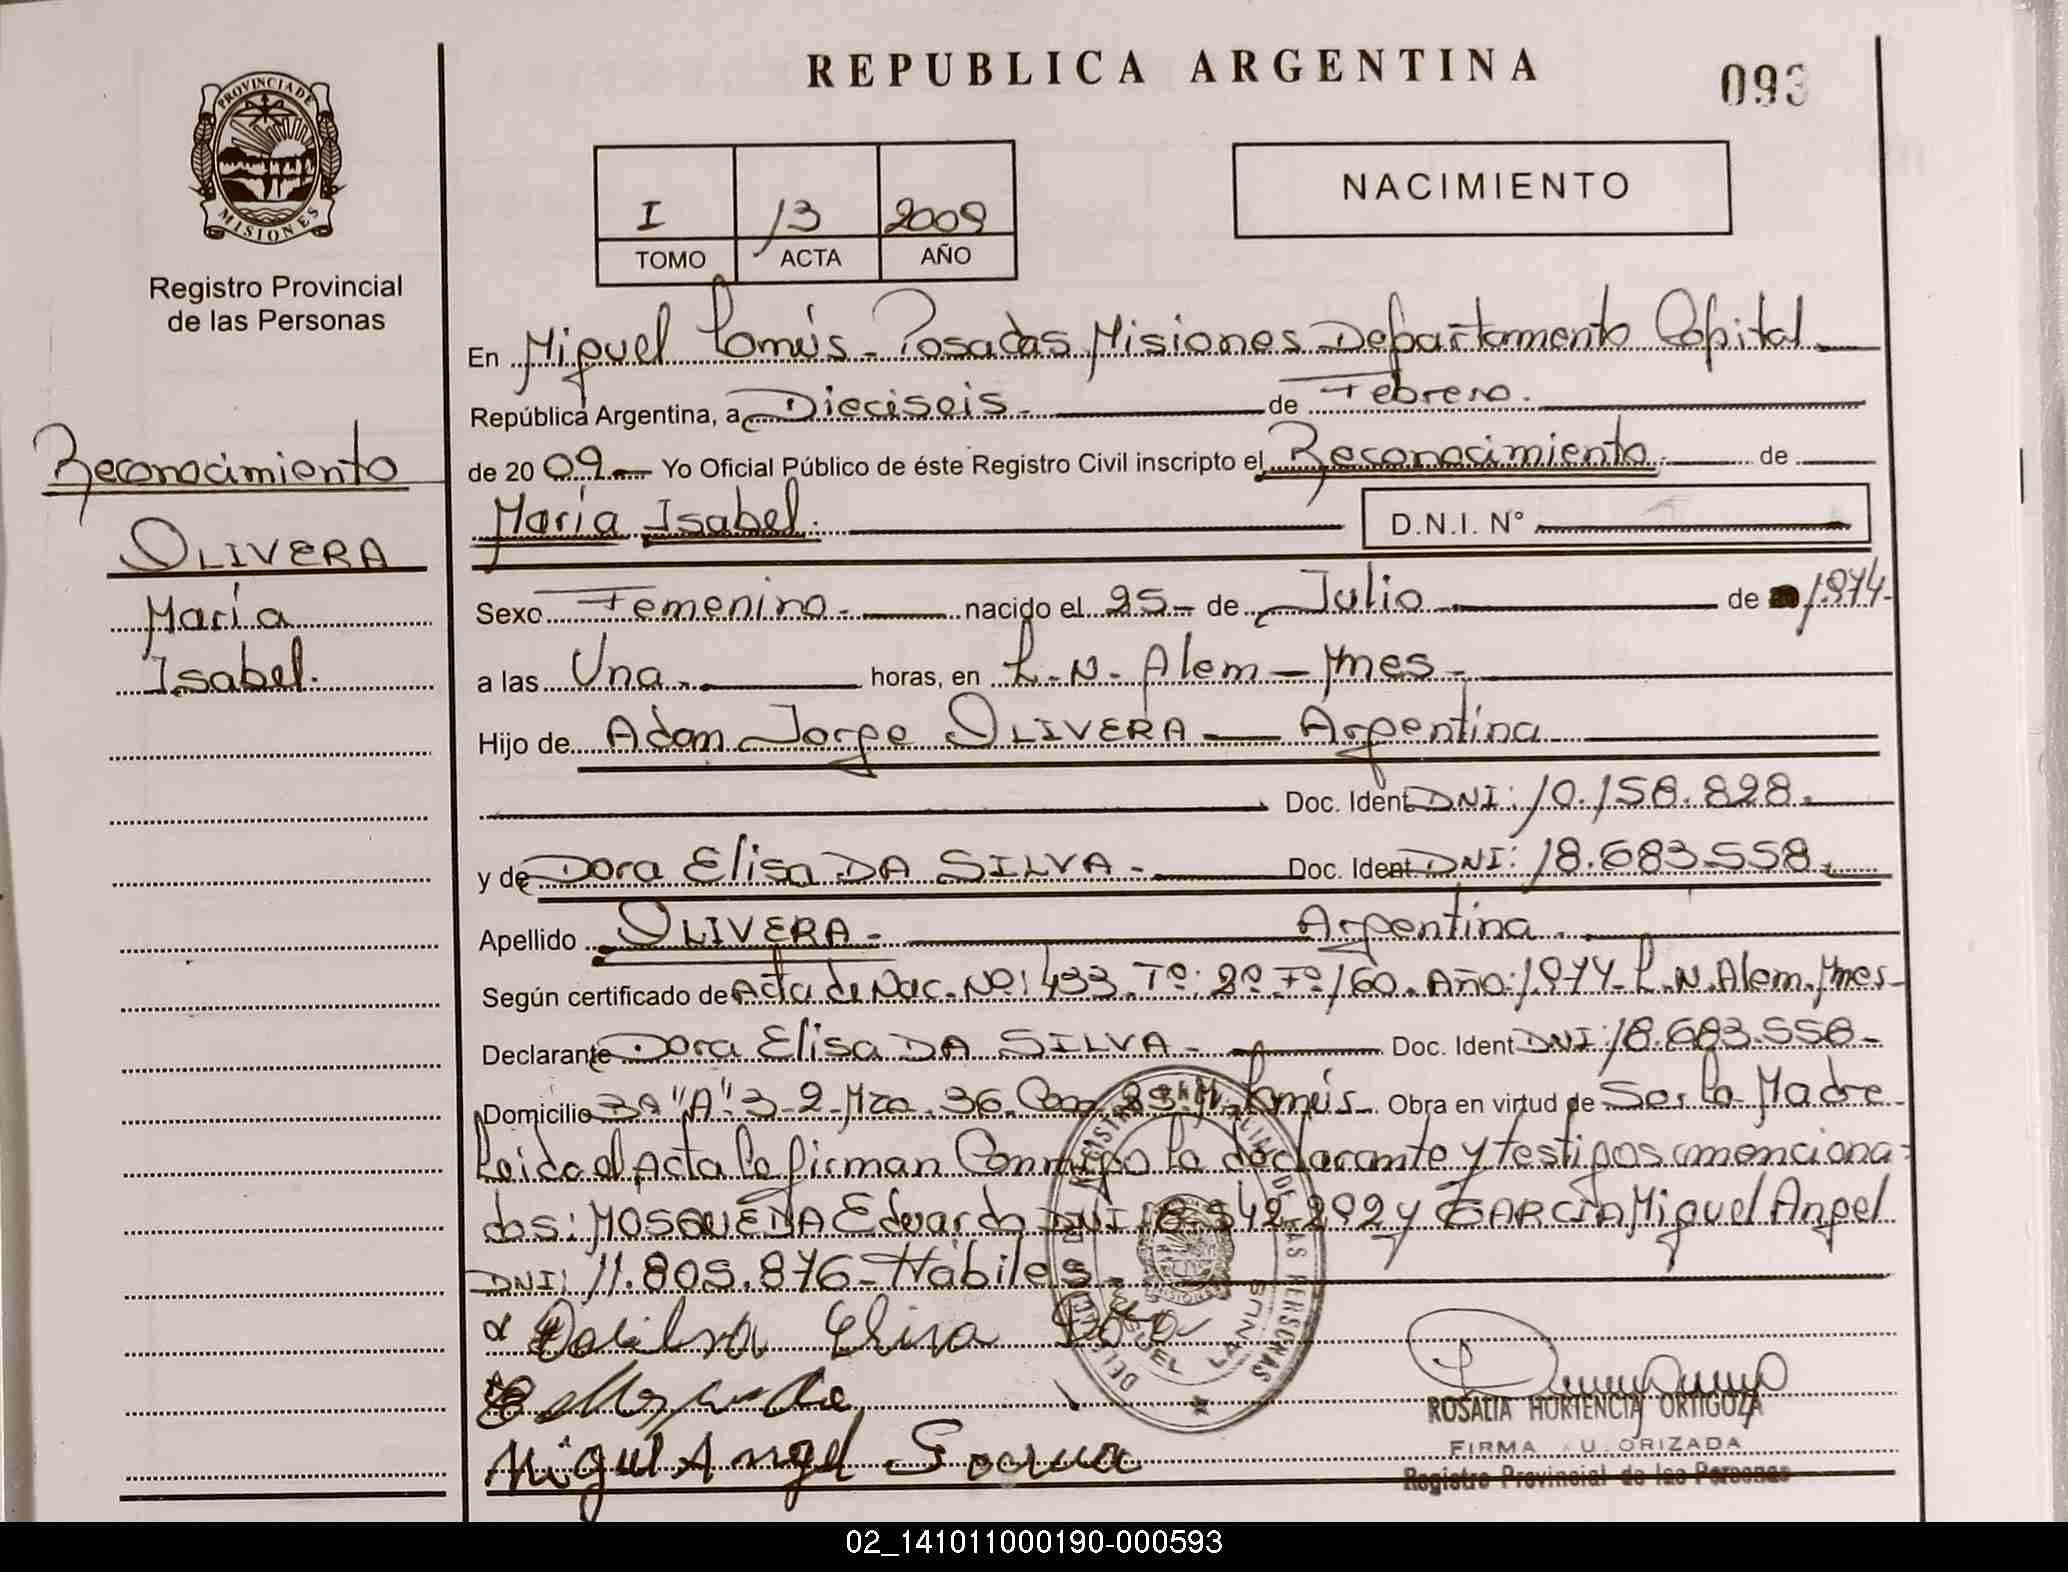 REPUBLICA ARGENTINA
093
PROVINCIA DE
MISIONES
Registro Provincial
de las Personas
I 13 2009
TOMO ACTA AÑO
NACIMIENTO
En Miguel Lanús - Posadas Misiones Departamento Capital
República Argentina, a Dieciseis - de Febrero.
de 20 09 Yo Oficial Público de éste Registro Civil inscripto el Reconocimiento de
María Isabel.
D.N.I. N°
Reconocimiento
OLIVERA
María
Isabel.
Sexo Femenino. nacido el 25 - de Julio de 1974-
a las Una. horas, en L. N. Alem - Mnes -
Hijo de Adan Jorge OLIVERA Argentina
Doc. Ident DNI: 10.158.828.
y de Dora Elisa DA SILVA - Doc. Ident DNI: 18.683.558.
Apellido OLIVERA - Argentina.
Según certificado de Acta de Nac. Nº: 433 Tº: 2º Fº 160. Año: 1974 - L. N. Alem. Mnes -
Declarante Dora Elisa DA SILVA - Doc. Ident DNI: 18.683.558 -
Domicilio "A" 3-2 Mza. 36 Lanús - Obra en virtud de Ser la Madre
Leida el Acta la firman Conmigo la declarante y testigos a menciona-
dos: Eduardo DNI: 8.542.292 y GARCIA Miguel Angel
DNI: 11.805.876 - Hábiles.
Elisa
Miguel Angel
ROSALIA HORTENCIA ORTIGOZA
FIRMA AUTORIZADA
Registro Provincial de las Personas
02_141011000190-000593